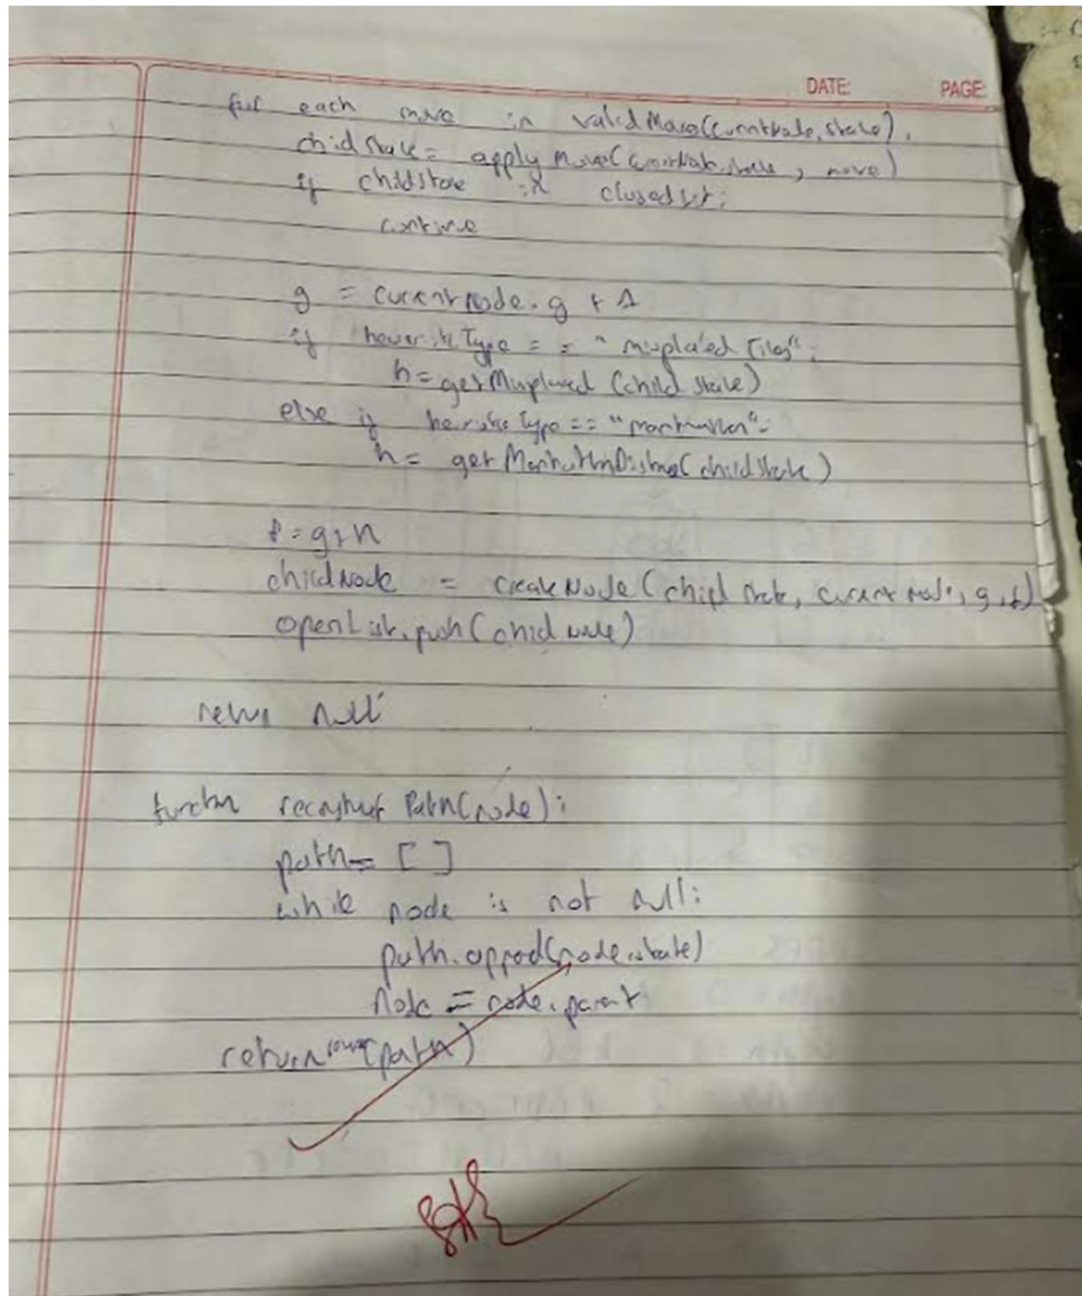 DATE: PAGE:
for each move in validMoves(currentNode.state):
childState = applyMove(currentNode.state, move)
if childState in closedSet:
continue
g = currentnode.g + 1
if heuristicType == "misplaced Tiles":
h = getMisplaced (child state)
else if heuristicType == "manhattan":
h = getManhattanDistance(childState)
f = g + h
childNode = createNode(child state, current node, g, f)
openList.push(childNode)
return null
function reconstruct Path(node):
path = [ ]
while node is not null:
path.append(node.state)
node = node.parent
return (path)